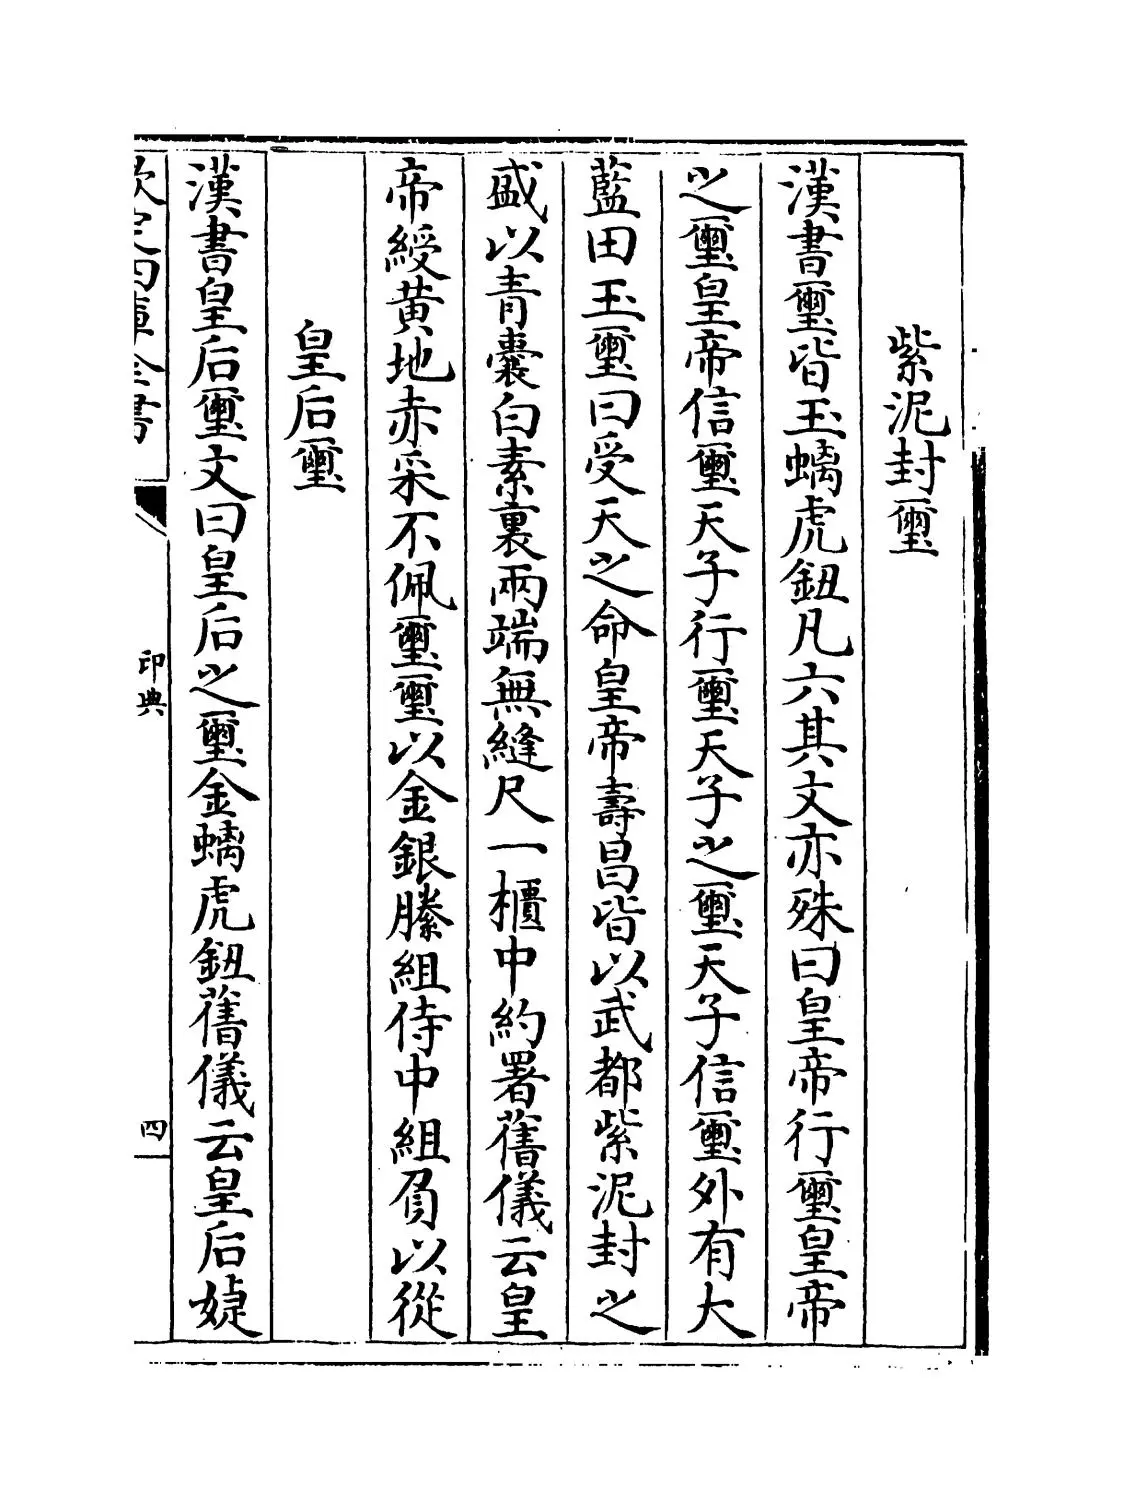 紫泥封璽
漢書璽皆玉螭虎鈕凡六其文亦殊曰皇帝行璽皇帝
之璽皇帝信璽天子行璽天子之璽天子信璽外有大
藍田玉璽曰受天之命皇帝壽昌皆以武都紫泥封之
盛以青囊白素裏兩端無縫尺一櫃中約署舊儀云皇
帝綬黃地赤采不佩璽璽以金銀縢組侍中組負以從
皇后璽
漢書皇后璽文曰皇后之璽金螭虎鈕舊儀云皇后婕
欽定四庫全書
印典
四